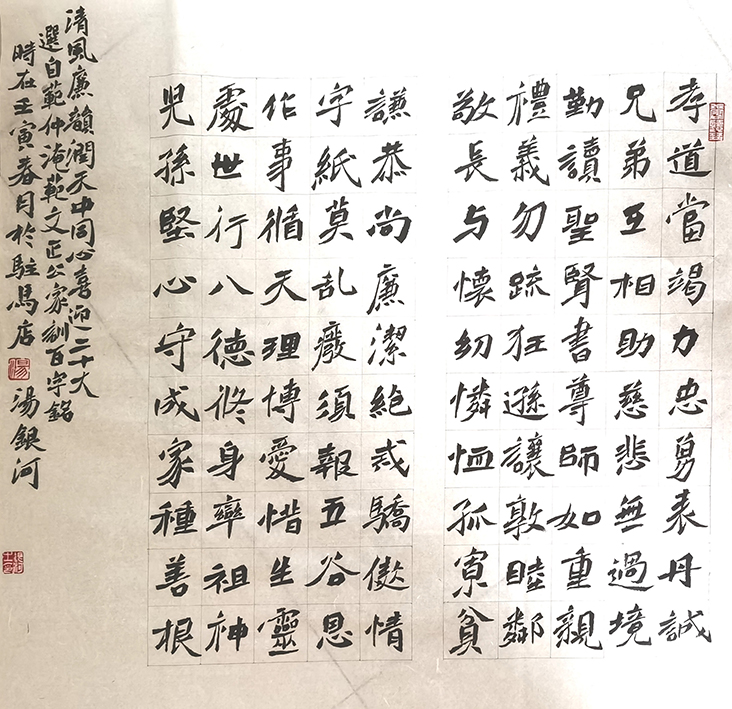 孝道當竭力忠勇表丹誠
兄弟互相助慈悲無過境
勤讀聖賢書尊師如重親
禮義勿疏狂遜讓敦睦鄰
敬長与懷幼憐恤孤寡貧
謙恭尚廉潔絕戒驕傲情
字紙莫乱廢須報五谷恩
作事循天理博愛惜生靈
處世行八德修身率祖神
児孫堅心守成家種善根
清風廉韻潤天中同心喜迎二十大
選自範仲淹範文正公家訓百字銘
時在壬寅春月於駐馬店湯銀河